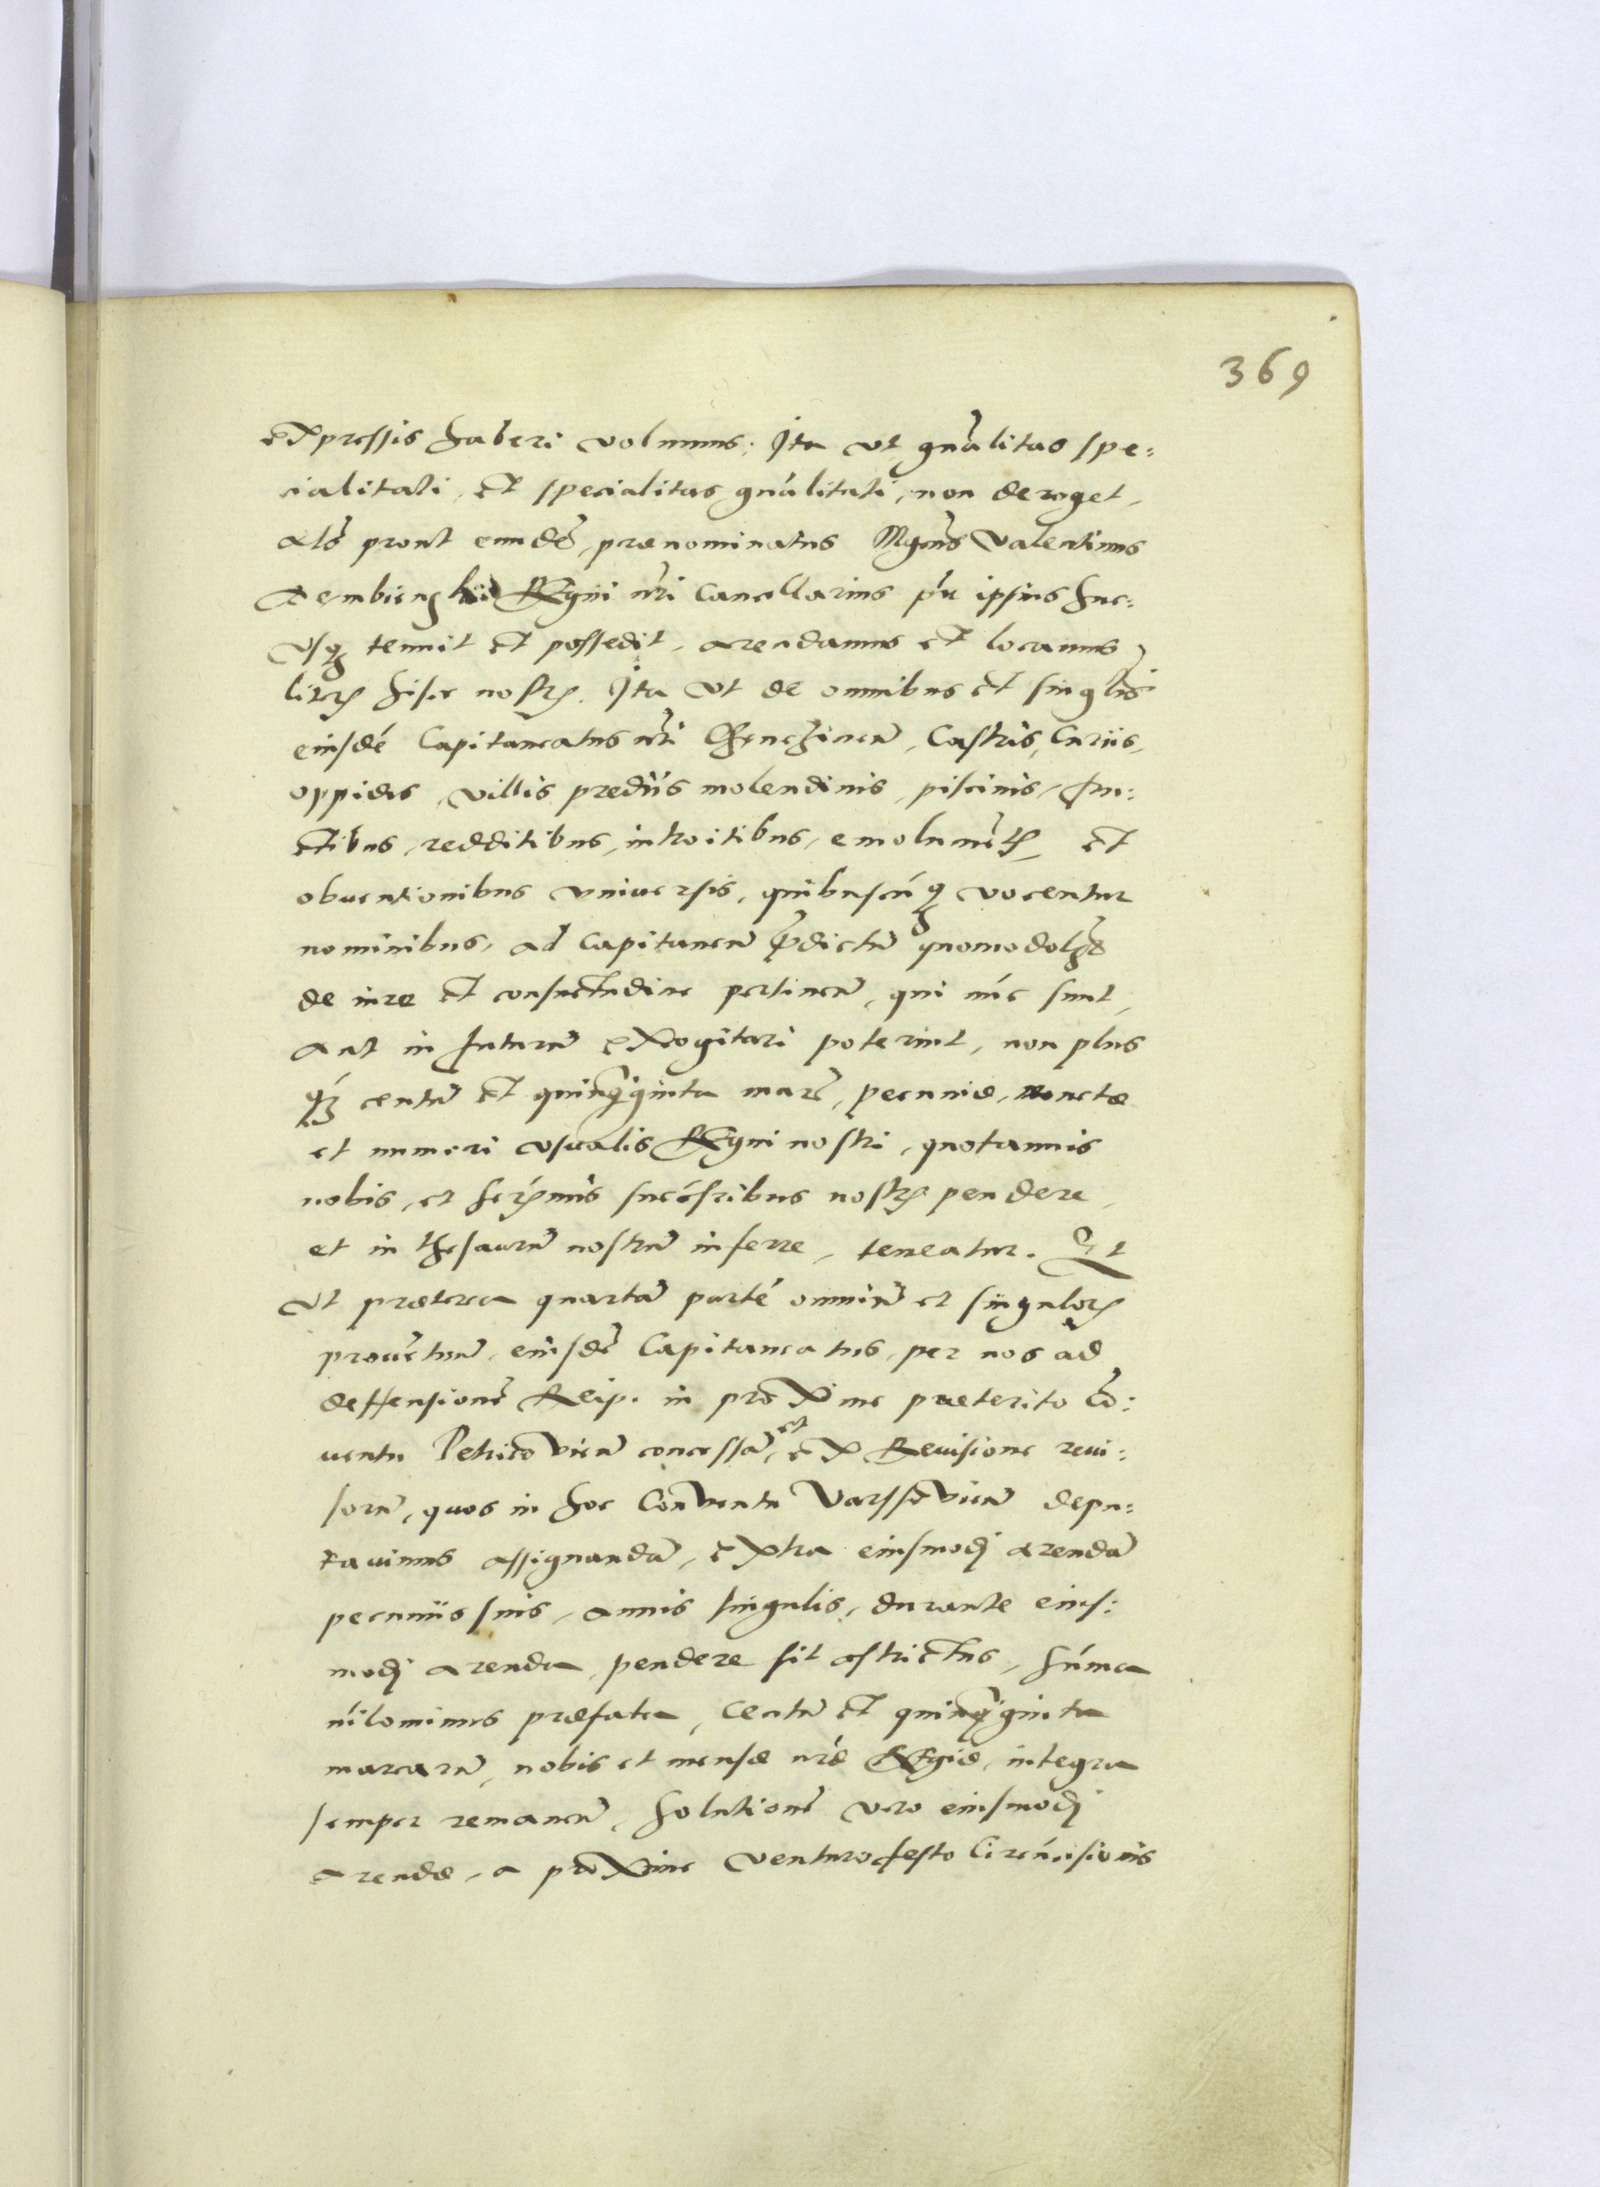 369
expressis haberi volumus. Ita ut gnãlitas spe:
cialitati, et specialitas gnãlitati, non deroget,
als prout eundẽ prænominatus Mgcus Valentinus
Dembienskii Regni nri Cancellarius pñ ipsius huc:
usq tenuit et possedit, arendamus et locamus
litris hisce nostris. Ita ut de omnibus et singlis
eiusdẽ Capitaneatus nri Chenczinen, Castris, Curiis,
oppidis, villis prediis molendinis, piscinis, fru:
ctibus, redditibus, introitibus, emolumẽtis, et
obventionibus universis, quibuscũq vocentur
nominibus, ad Capitaneũ p̃dictũ quomodolbt
de iure et consuetudine pertineñ, qui nũc sunt,
aut in futurũ excogitari poterint, non plus
q̃ centũ et quinq̃ginta marc̃, pecuniæ, monetæ
et numeri usualis Regni nostri, quotannis
nobis, et serẽmis succẽsribus nostris pendere,
et in thesaurũ nostrũ inferre, teneatur. Et
ut præterea quartã partẽ omniũ et singulorũ
provẽtuũ, eiusdẽ Capitaneatus, per nos ad
deffensionẽ Reip. in proxime præterito Cõ:
ventu Petricovien concessã, et ex Revisione revi:
sorũ, quos in hoc Conventu Varssovien depu:
tavimus assignandã, extra eiusmodj arendã
pecuniis suis, annis singulis, durante eius:
modj arenda, pendere sit astrictus, sũma
nilominus præfata, Centũ et quinq̃ginta
marcarũ, nobis et mensæ nræ Regiæ, integra
semper remaneñ, solutionẽ vero eiusmodj
arendæ, a proxime venturo festo Circũcisionis